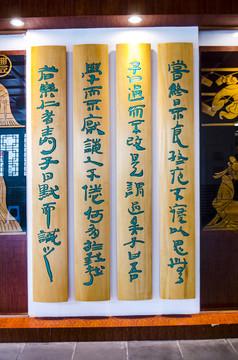 者樂仁者壽子曰默而識之
學而不厭誨人不倦何有於我哉
子曰過而不改是謂過矣子曰吾
嘗終日不食終夜不寢以思